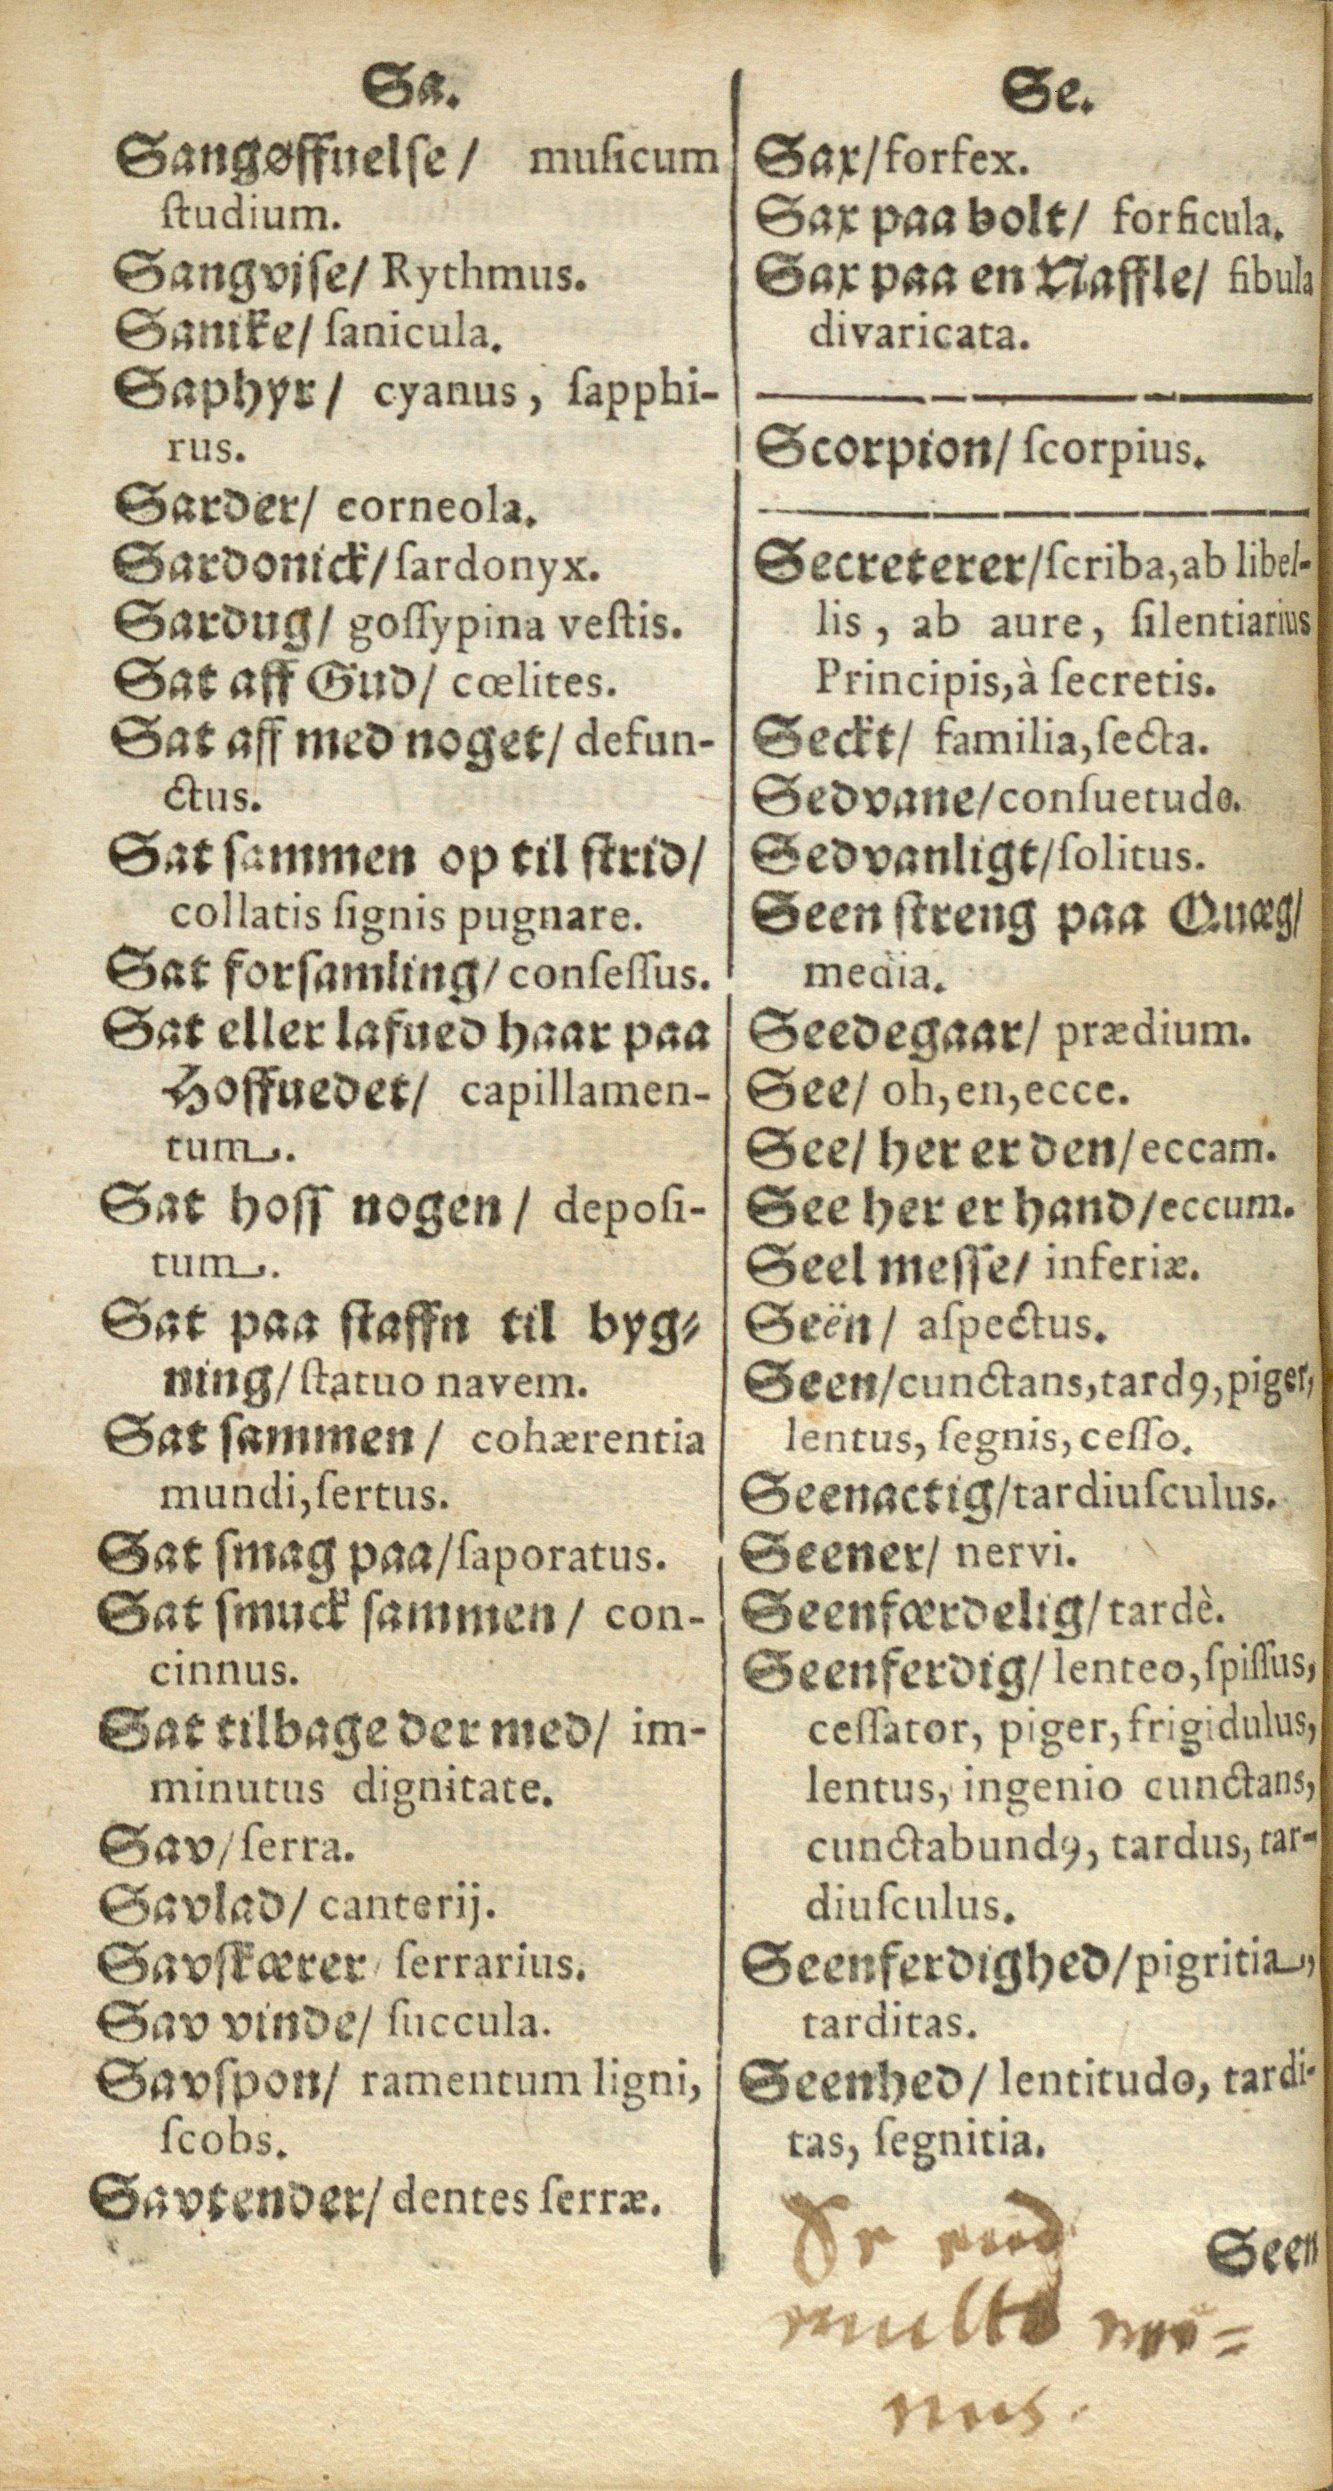 Sa.
Sangøffuelse/ muſicum
ſtudium.
Sangvjſe/ Rythmus.
Sanicke/ ſanicula.
Saphyr/ cyanus, ſapphi-
rus.
Sarder/ corneola.
Sardonick/ ſardonyx.
Sardug/ goſſypina veſtis.
Sat aff Gud/ cœlites.
Sat aff med noget/ defun-
ctus.
Sat ſammen op til ſtrid/
collatis ſignis pugnare.
Sat forſamling/ conſeſſus.
Sat eller lafued haar paa
Hoffuedet/ capillamen-
tum.
Sat hoſſ nogen/ depoſi-
tum.
Sat paa ſtaffn til byg-
ning/ ſtatuo navem.
Sat ſammen/ cohærentia
mundi, ſertus.
Sat ſmag paa/ ſaporatus.
Sat ſmuck ſammen/ con-
cinnus.
Sat tilbage der med/ im-
minutus dignitate.
Sav/ ſerra.
Savlad/ canterij.
Savſkærer/ ſerrarius.
Sav vinde/ ſuccula.
Savſpon/ ramentum ligni,
ſcobs.
Savtender/ dentes ſerræ.
Se.
Sax/ forfex.
Sax paa bolt/ forficula.
Sax paa en Naffle/ fibula
divaricata.
Scorpion/ ſcorpius.
Secreterer/ ſcriba, ab libel-
lis, ab aure, ſilentiarius
Principis, à ſecretis.
Seckt/ familia, ſecta.
Sedvane/ conſuetudo.
Sedvanligt/ ſolitus.
Seen ſtreng paa Quæg/
media.
Seedegaar/ prædium.
See/ oh, en, ecce.
See/ her er den/ eccam.
See her er hand/ eccum.
Seel meſſe/ inferiæ.
Seën/ aſpectus.
Seen/ cunctans, tardꝰ, piger,
lentus, ſegnis, ceſſo.
Seenactig/ tardiuſculus.
Seener/ nervi.
Seenfærdelig/ tardè.
Seenferdig/ lenteo, ſpiſſus,
ceſſator, piger, frigidulus,
lentus, ingenio cunctans,
cunctabundꝰ, tardus, tar-
diuſculus.
Seenferdighed/ pigritia,
tarditas.
Seenhed/ lentitudo, tardi-
tas, ſegnitia.
Seen
multo
nus.